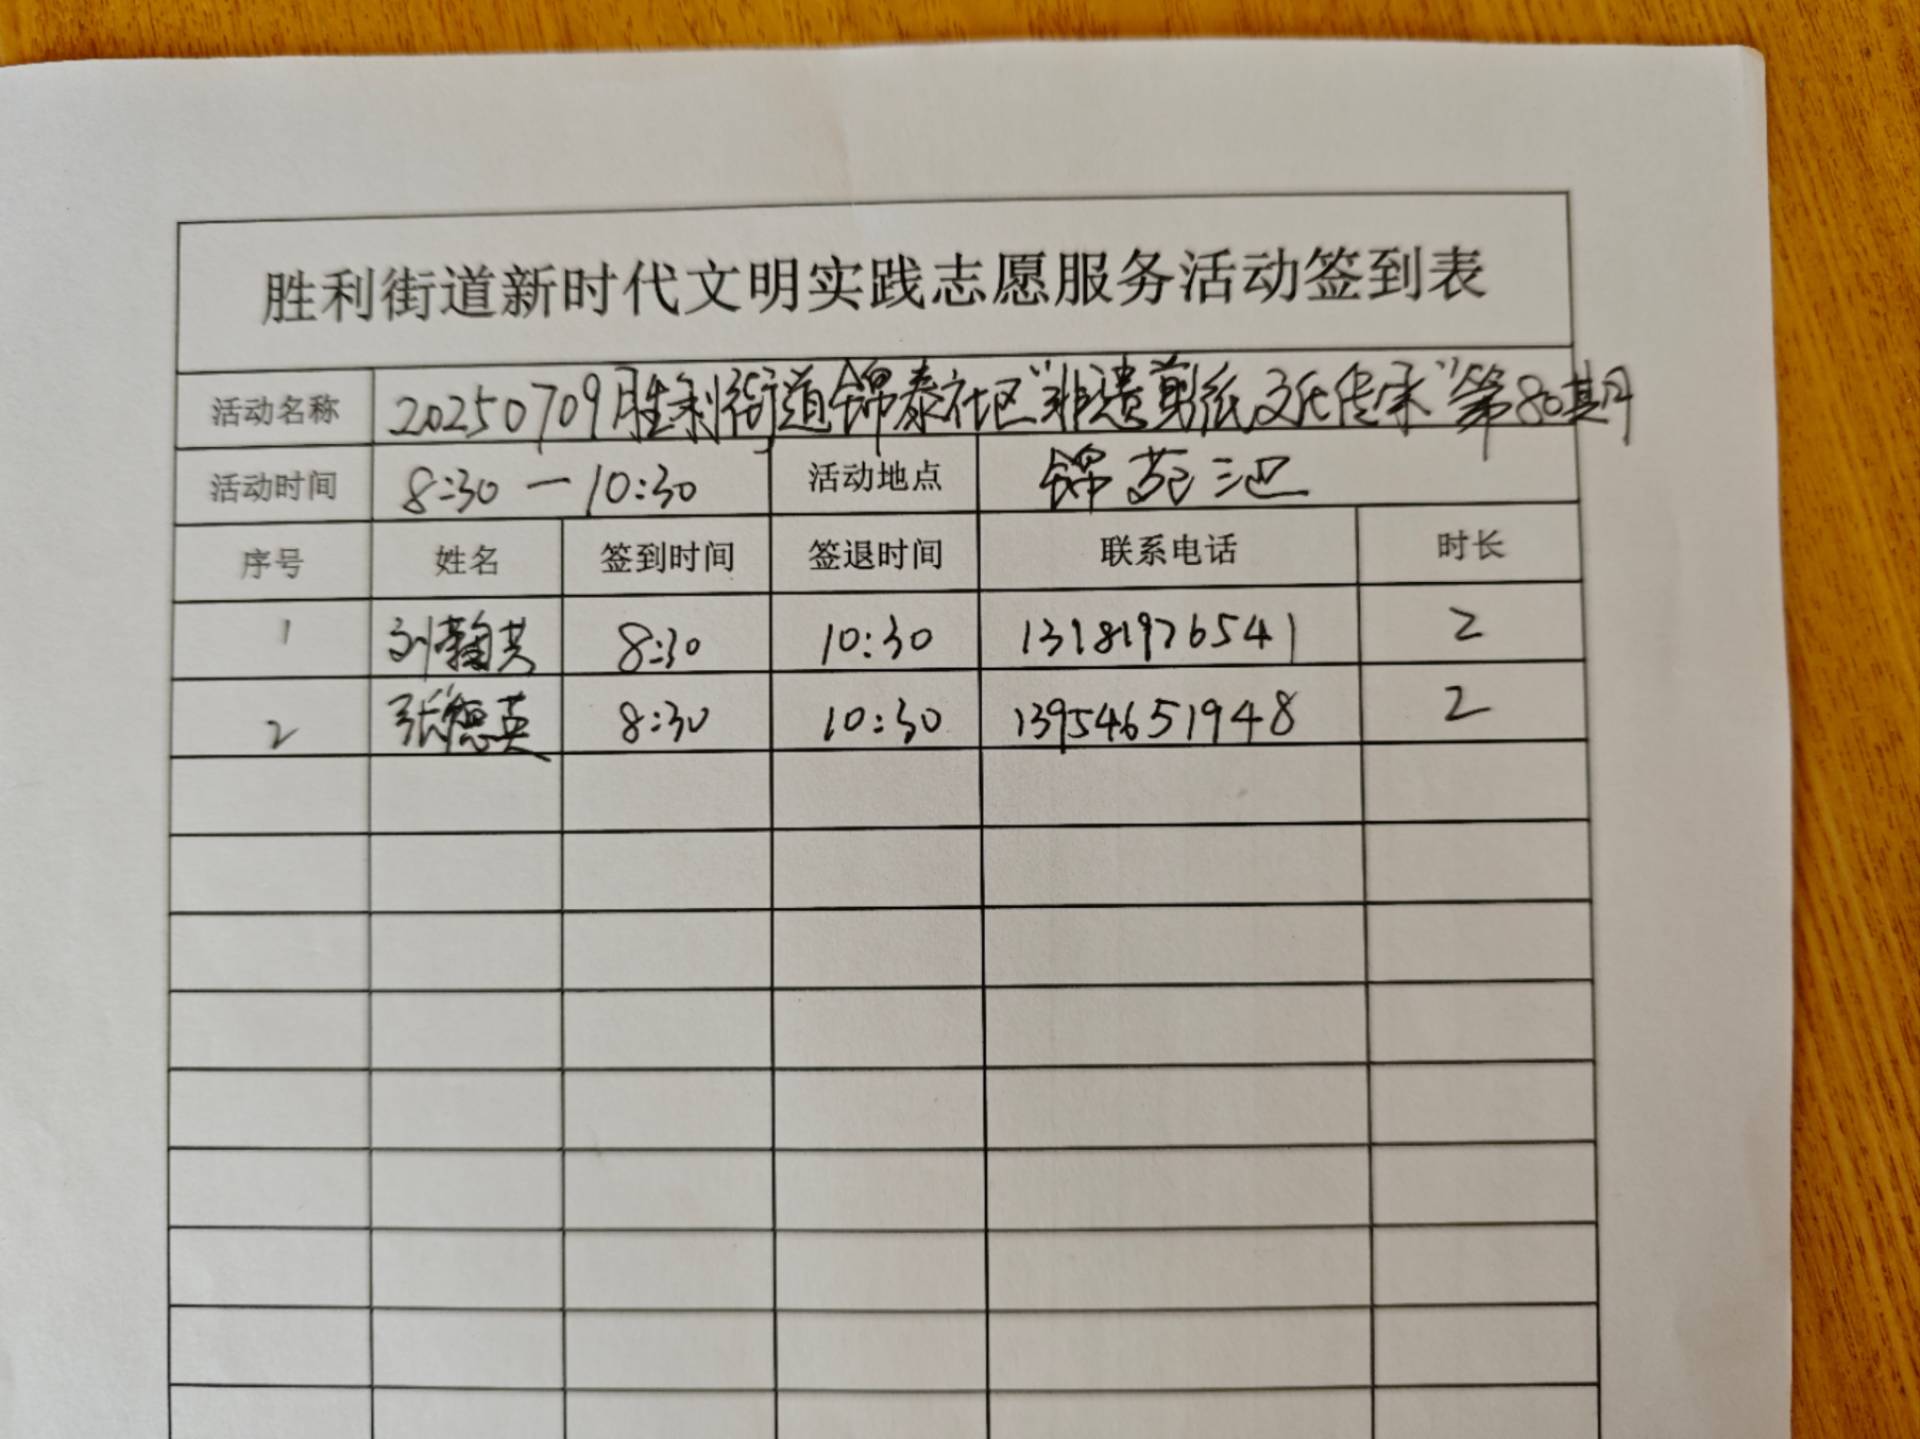 胜利街道新时代文明实践志愿服务活动签到表
活动名称 20250709胜利街道锦泰社区"非遗剪纸文化传承"第80期
活动时间 8:30一10:30 活动地点 锦苑三区
序号 姓名 签到时间 签退时间 联系电话 时长
1 刘翰英 8:30 10:30 13181976541 2
2 张德英 8:30 10:30 13954651948 2